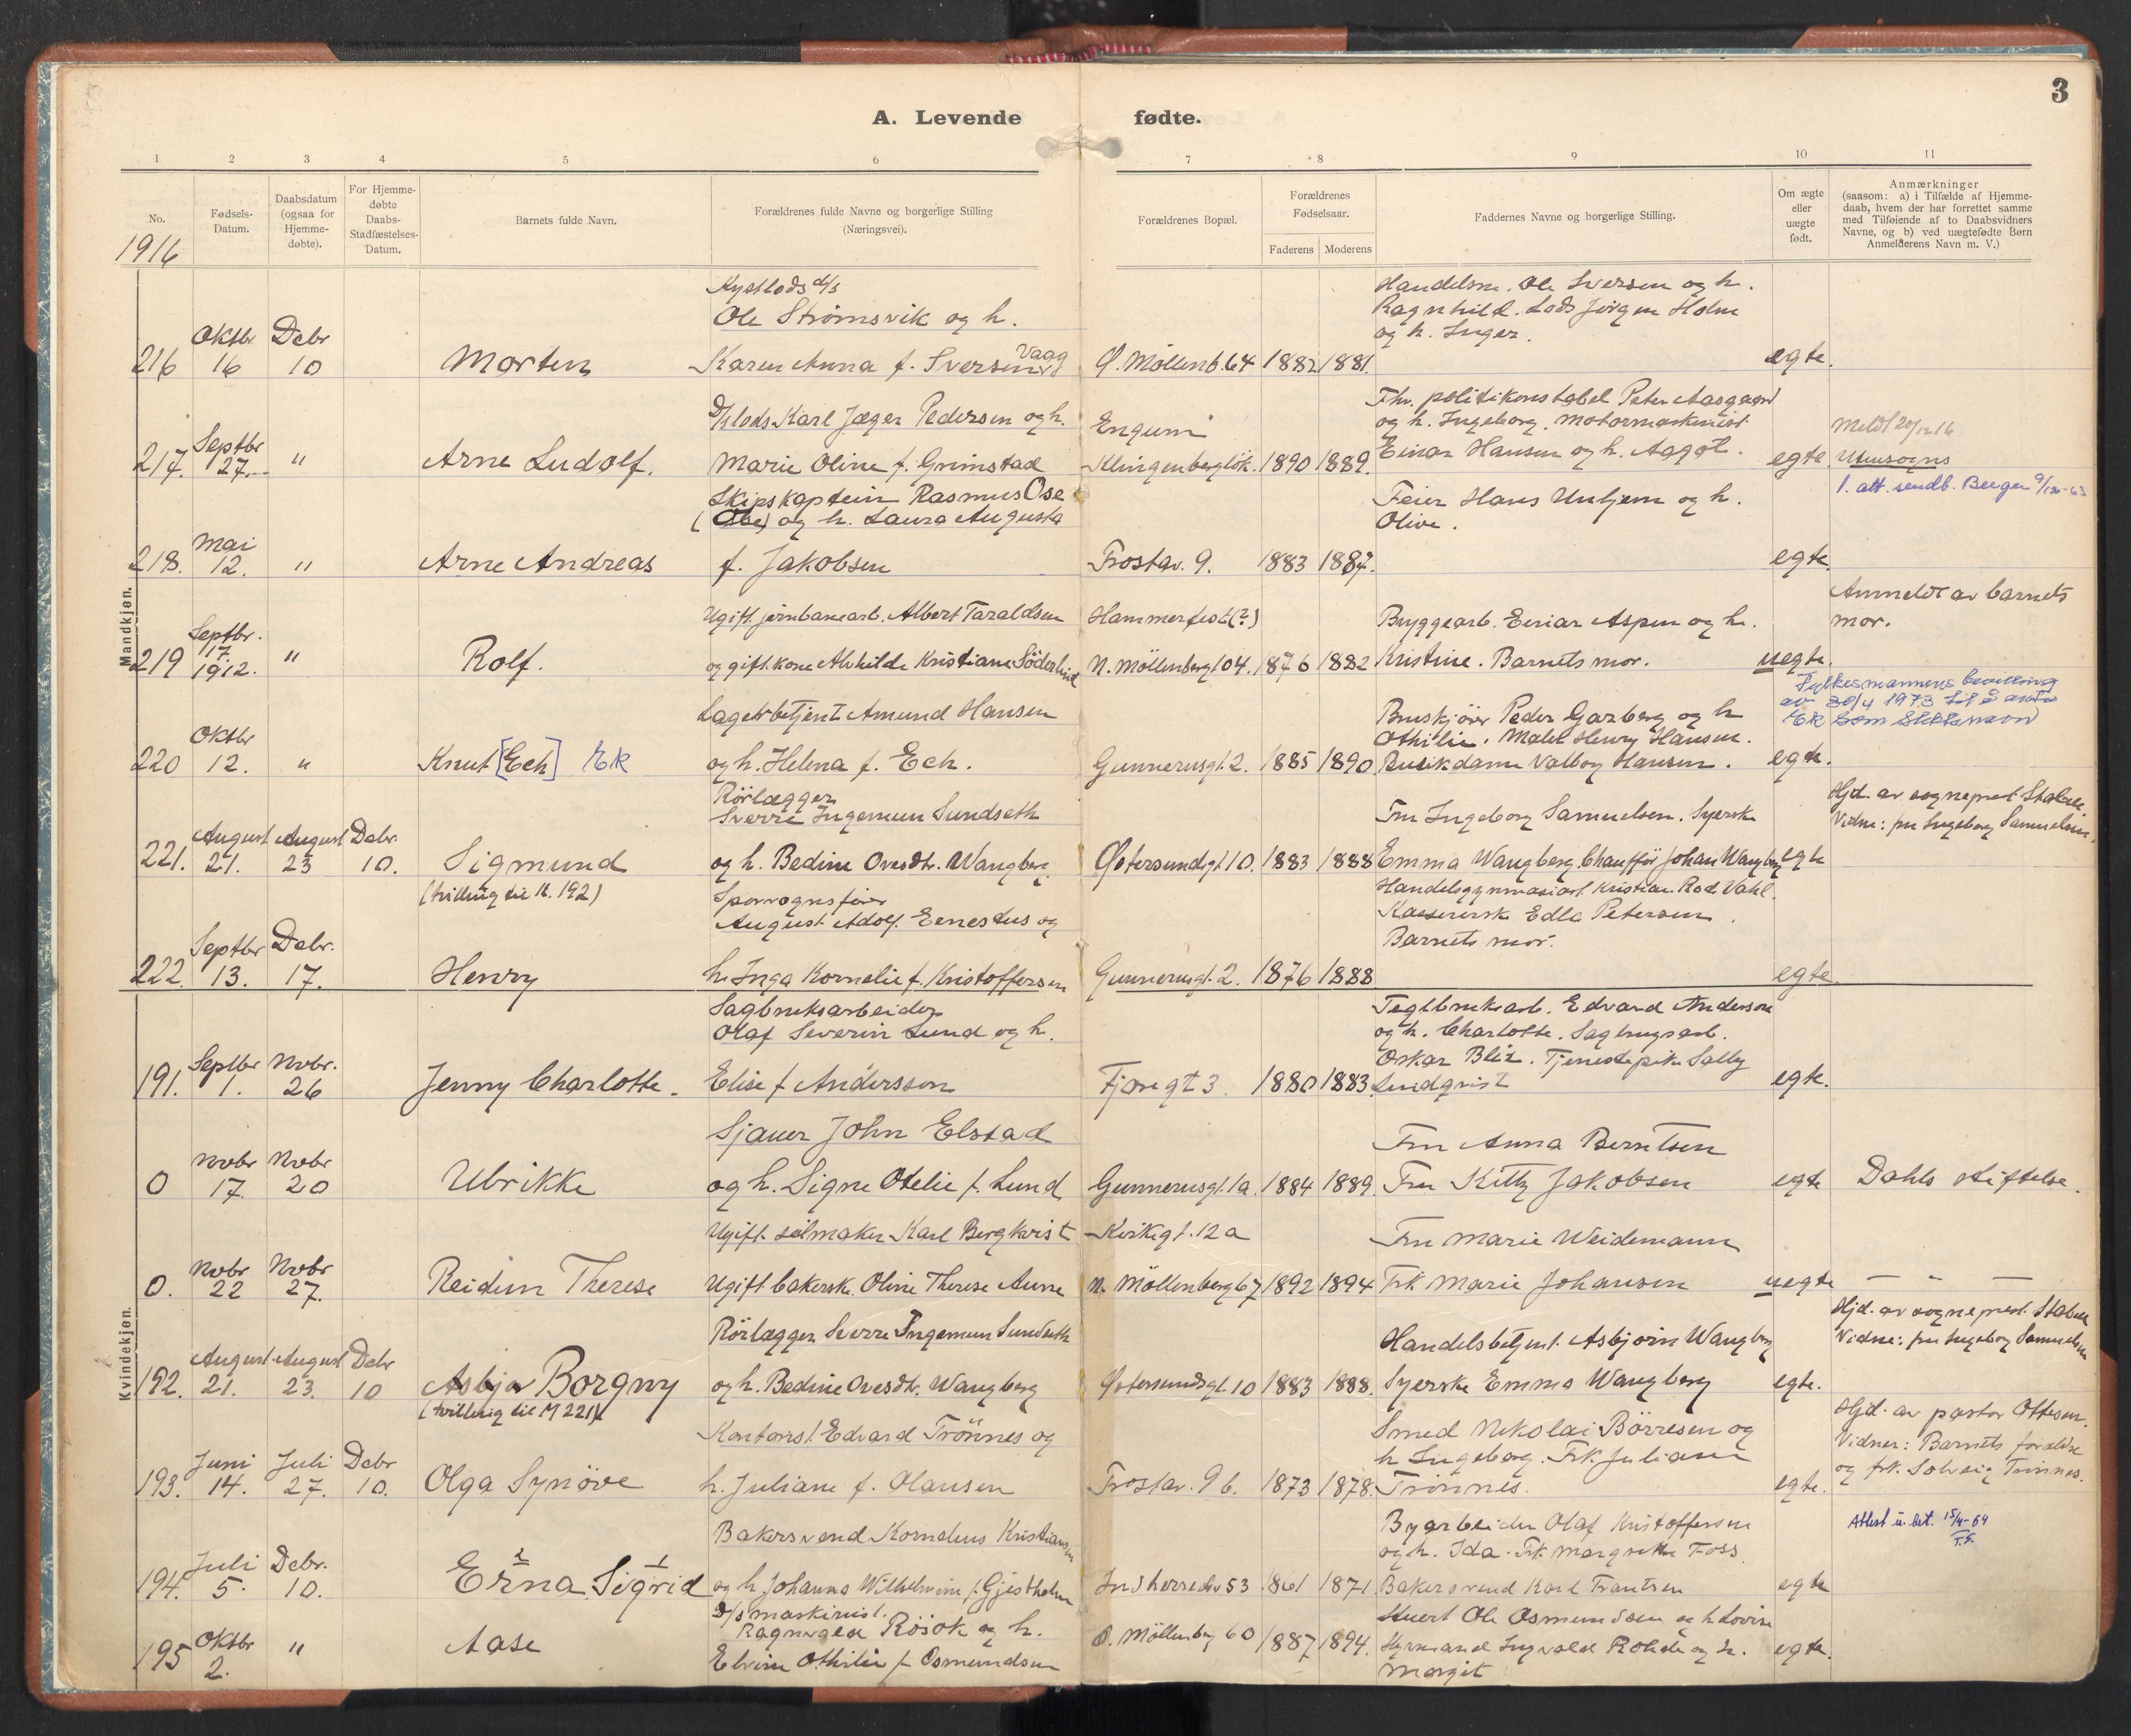 3
A. Levende fødte.
1 2 3 4 5 6 7 8 9 10 11
No.
Fødsels-
Datum.
Daabsdatum
(ogsaa for
Hjemme-
døbte).
For Hjemme-
døbte
Daabs-
Stadfæstelses-
Datum.
Barnets fulde Navn.
Forældrenes fulde Navne og borgerlige Stilling
(Næringsvei).
Forældrenes Bopæl.
Forældrenes
Fødselsaar.
Faderens Moderens
Faddernes Navne og borgerlige Stilling.
Om ægte
eller
uægte
født.
Anmærkninger
(saasom: a) i Tilfælde af Hjemme-
daab, hvem der har forrettet samme
med Tilføiende af to Daabsvidners
Navne, og b) ved uægtefødte Børn
Anmelderens Navn m. V.)
1916
Mandkjøn.
216
Oktbr
16
Debr
10
Morten
Kystlods d/s
Ole Strömsvik og h.
Karen Anna f. Iversen Vaag
Ø. Möllenb. 64
1882 1881.
Handelsm. Ole Iversen og h.
Ragnhild. Lods Jörgen Holm
og h. Inger.
egte.
217.
Septbr
27.
"
Arne Ludolf.
D/s lods Karl Jæger Pedersen og h.
Marie Oline f. Grimstad
Engum
Klingenberg lök.
1890 1889.
Fhv. politikonstabel Peter Aasgaard
og h. Ingeborg. Motormaskinist
Einar Hansen og h. Aagot.
egte
Meldt 20/12 16
Utensogns
1. att. sendt. Bergen 9/12-63
218.
Mai
12.
"
Arne Andreas
Skipskaptein Rasmus Ose
(Obe) og h. Laura Augusta
f. Jakobsen
Frostav. 9.
1883 1887.
Feier Hans Unhjem og h.
Olive.
egte.
219
Septbr.
17.
1912.
"
Rolf.
Ugift. jernbanearb. Albert Taraldsen
og gift. kone Alvhilde Kristiane Söderlind
Hammerfest(?)
N. Möllenberg 104.
1876 1882
Bryggearb. Einar Aspen og h.
Kristine. Barnets mor.
uegte.
Anmeldt av barnets
mor.
220
Oktbr
12.
"
Knut [Ech] Ek
Lagerbetjent Amund Hansen
og h. Helena f. Ech.
Gunnerusgt. 2.
1885 1890
Bruskjörer Peder Garberg og h
Othilie. Maler Henry Hansen.
Butikdame Valborg Hansen.
egte.
Fylkesmannens bevilling
av 30/4 1973 til å anta
Ek som slektsnavn
221.
August
21.
August
23
Debr.
10.
Sigmund
(tvilling til K. 192)
Rörlægger
Sverre Ingemun Sundseth
og h. Bedine Ovesdtr. Wangberg.
Østersundsgt. 10.
1883 1888
Fru Ingeborg Samuelsen. Syerske
Emma Wangberg. Chauffør Johan Wangberg
egte
Hjd. av sogneprest Stabell
Vidne: fru Ingeborg Samuelsen.
222.
Septbr
13.
Debr.
17.
Henry
Sporvognsförer
August Adolf Ernestus og
h. Inga Kornelie f. Kristoffersen
Gunnerusgt. 2.
1876 1888
Handelsgymnasiast. Kristian Rod. Vahl.
Kassererske Edla Petersen.
Barnets mor.
egte.
Kvindekjøn.
191.
Septbr
1.
Novbr.
26
Jenny Charlotte.
Sagbruksarbeider
Olaf Severin Lund og h.
Elise f. Andersson
Fjæregt 3.
1880 1883
Teglbruksarb. Edvard Anderson
og h. Charlotte. Sagbrugsarb.
Oskar Blix. Tjenestepike Sally
Lundqvist
egte.
0
Novbr
17.
Novbr
20
Ulrikke
Sjauer John Elstad
og h. Signe Otelie f. Lund
Gunnerusgt. 1a.
1884 1889.
Fru Anna Berntsen
Fru Kitty Jakobsen
egte
Dahls stiftelse.
0.
Novbr
22
Novbr
27.
Reidun Therese
Ugift. seilmaker Karl Bergkvist
Ugift. bakerske. Oline Therese Aune
Kirkegt. 12a
N. Möllenberg 67
1892 1894.
Fru Marie Weidemann
Frk Marie Johansen
uegte
— " —
192.
August
21.
August
23.
Debr
10
Asbjø Borgny
(tvilling til M 221)
Rörlægger Sverre Ingemun Sundseth
og h. Bedine Ovesdtr. Wangberg
Østersundsgt. 10
1883 1888.
Handelsbetjent. Asbjörn Wangberg
Syerske Emma Wangberg
egte.
Hjd. av sogneprest. Stabell
Vidne: fru Ingeborg Samuelsen
193.
Juni
14.
Juli
27.
Debr
10.
Olga Synöve
Kontorist. Edvard Trönnes og
h. Juliane f. Olausen
Frostav. 9 b.
1873 1878.
Smed Nikolai Börresen og
h Ingeborg. Frk. Juliane
Trönnes.
egte.
Hjd. av pastor Ottesen.
Vidner: Barnets forældre
og frk. Solveig Trönnes.
194.
Juli
5.
Debr.
10.
2 1
Erna Sigrid
Bakersvend Kornelius Kristiansen
og h Johanna Wilhelmine f. Gjestholm
Indherredsv 53
1861 1871.
Byarbeider Olaf Kristoffersen
og h. Ida. Frk. Margrethe Foss.
Bakersvend Karl Frantsen
egte
Attest u. bet. 15/4-64
T.S.
195
Oktbr
2.
"
Aase
D/s maskinist.
Ragnvald Rösok og h.
Elvine Othilie f. Osmundsen
Ø. Möllenberg 60
1887 1894.
Stuert Ole Osmundsen og h Lovise
Hyrmand Ingvald Rohde og h.
Margit
egte.